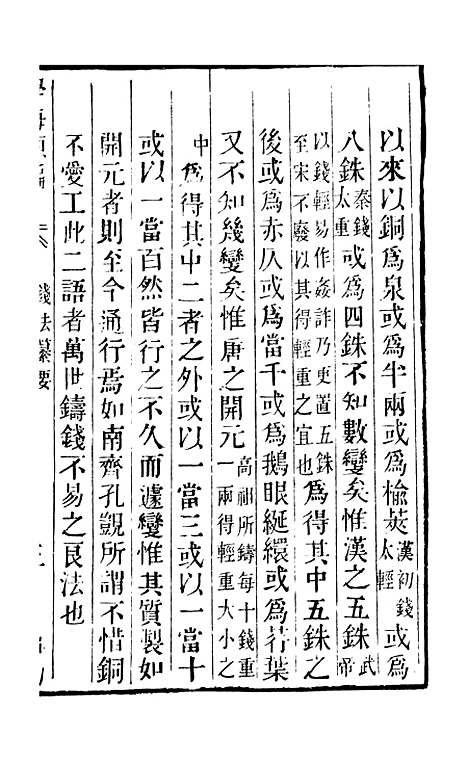 以來以銅爲泉或爲半兩或爲楡莢漢初錢太輕或爲
八銖秦錢太重或爲四銖不知數變矣惟漢之五銖武帝
以錢輕易作姦詐乃更置五銖至宋不廢以其得輕重之宜也爲得其中五銖之
後或爲赤仄或爲當千或爲鵝眼綖繯或爲荇葉
又不知幾變矣惟唐之開元高祖所鑄每十錢重一兩得輕重大小之
中爲得其中二者之外或以一當三或以一當十
或以一當百然皆行之不久而遽變惟其質製如
開元者則至今通行焉如南齊孔覬所謂不惜銅
不愛工此二語者萬世鑄錢不易之良法也
錢法纂要